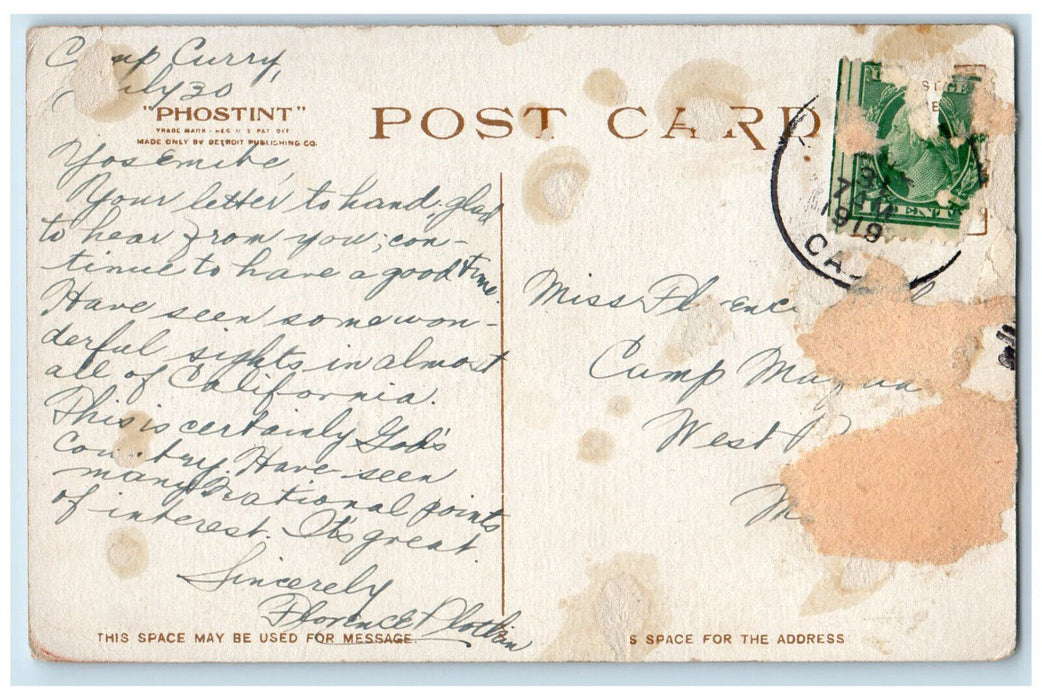 Camp Curry,
July 30
"PHOSTINT"
TRADE MARK - REG U S PAT OFF
MADE ONLY BY DETROIT PUBLISHING CO.
POST CARD
Yosemite,
Your letter to hand; glad
to hear from you; con-
tinue to have a good time.
Have seen some won-
derful sights in almost
all of California.
This is certainly God's
Country. Have seen
many National points
of interest. It's great
Sincerely
Florence
THIS SPACE MAY BE USED FOR MESSAGE
31
7 AM
1919
CA
Miss Florence
Camp
West
M
S SPACE FOR THE ADDRESS